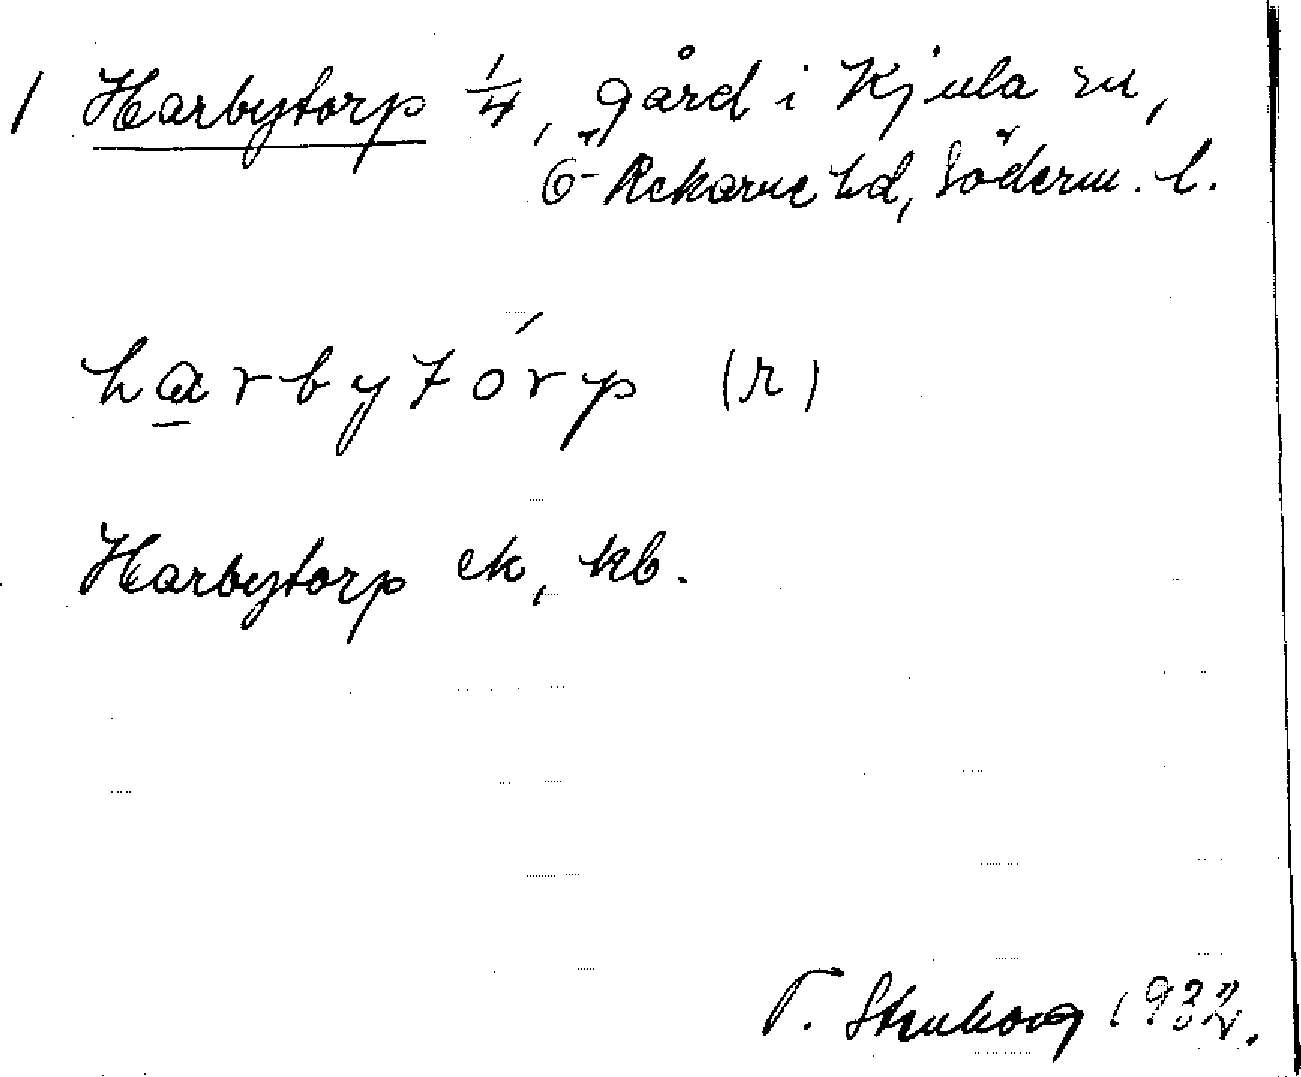 1 Harbytorp 1/4, gård i Kjula sn,
Ö-Rekarne hd, Söderm. l.
harbytórp (r)
Harbytorp ek, kb.
T. Stenborg 1932.